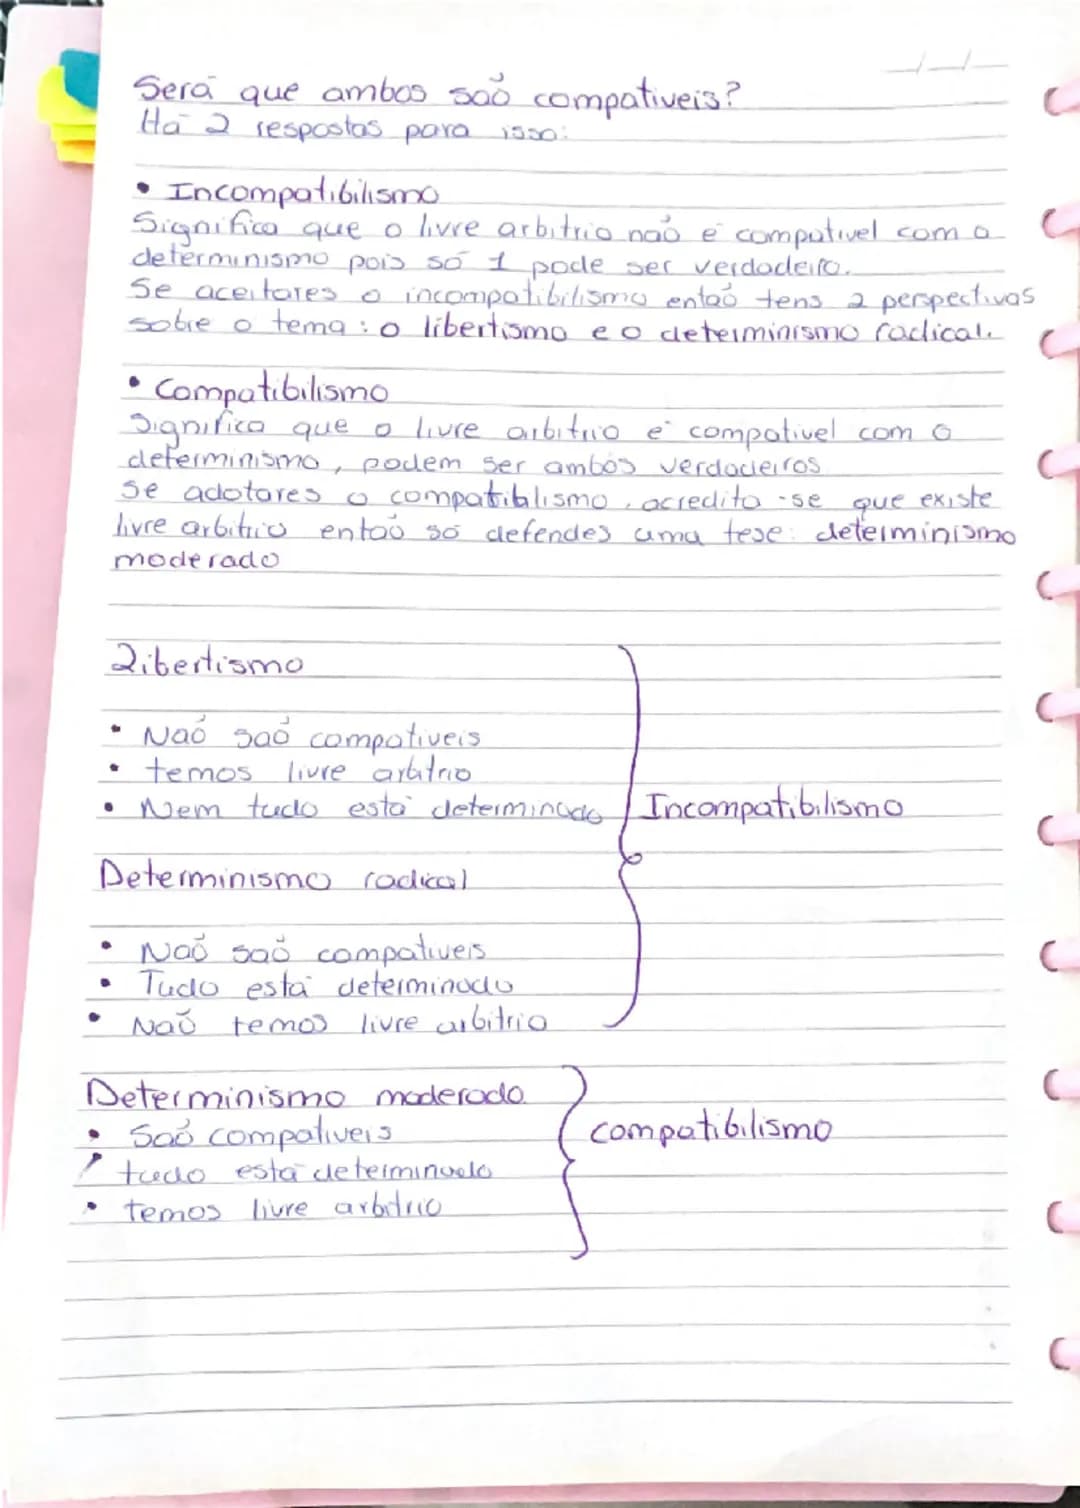 Será que ambos são compativeis?
Há 2 respostas para isso:
• Incompatibilismo
Significa que o livre arbitrio não é compativel com o
determinismo pois só 1 pode ser verdadeiro.
Se aceitares o incompatibilismo então tens 2 perspectivas
sobre o tema: o libertismo e o determinismo radical.
• Compatibilismo
Significa que o livre arbitrio é compativel com o
determinismo, podem ser ambos verdadeiros
Se adotares o compatiblismo, acredita-se que existe
livre arbitrio então só defendes uma tese: determinismo
moderado
Libertismo
• Não são compativeis
• temos livre arbitrio
• Nem tudo está determinado
Incompatibilismo
Determinismo radical
• Não são compativeis
• Tudo está determinado
• Não temos livre arbitrio
Determinismo moderado
• São compativeis
compatibilismo
• tudo está determinado
• temos livre arbitrio